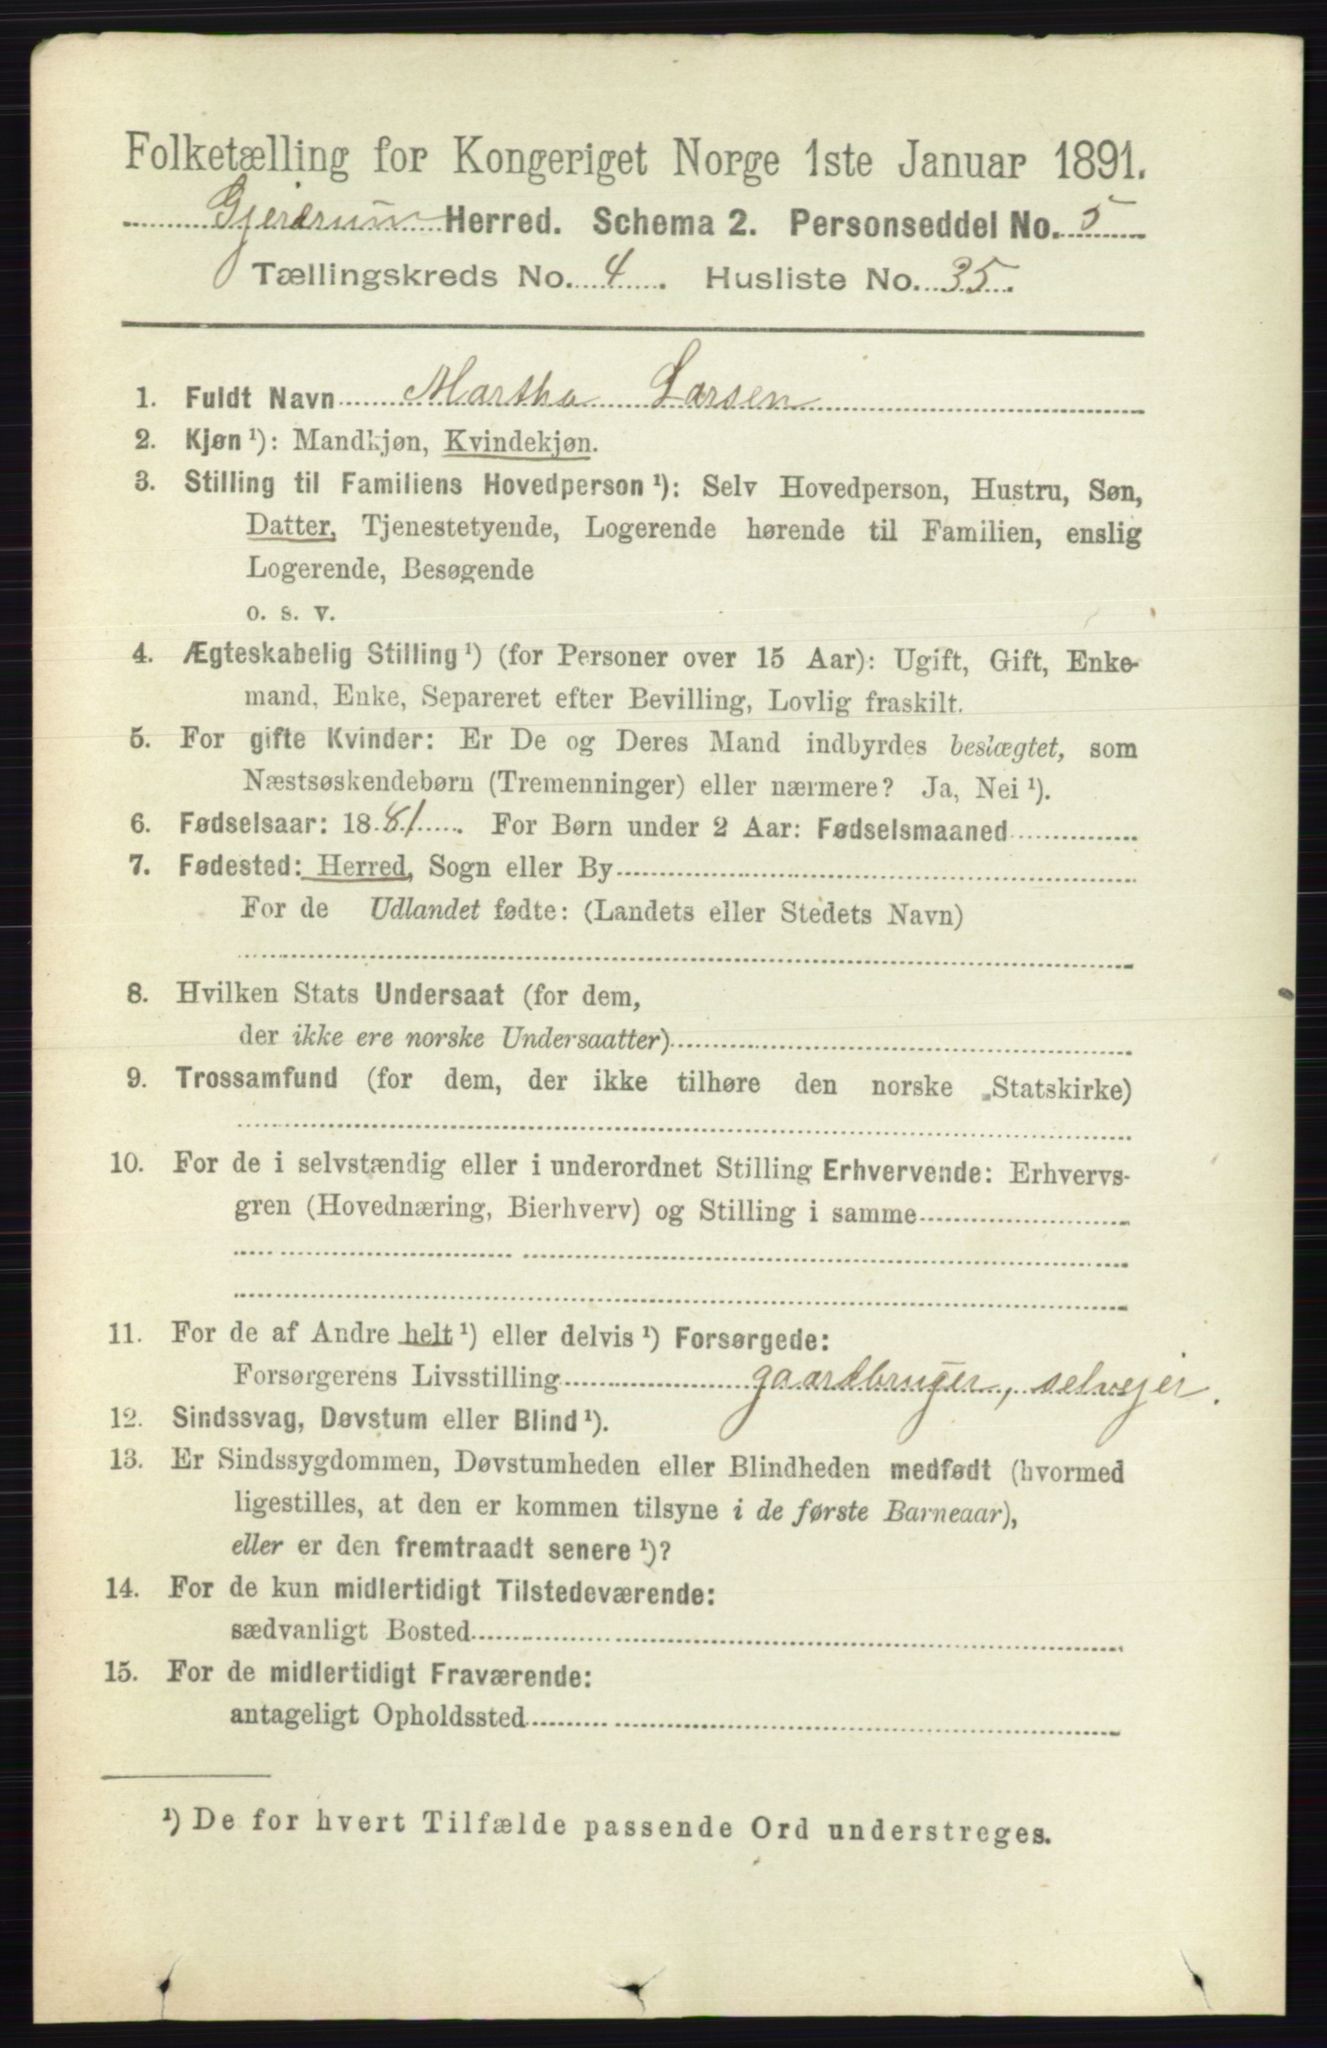 Folketælling for Kongeriget Norge 1ste Januar 1891.
Gjerdrum Herred. Schema 2. Personseddel No. 5
Tællingskreds No. 4. Husliste No. 35.
1. Fuldt Navn Martha Larsen
2. Kjøn¹): Mandkjøn, Kvindekjøn.
3. Stilling til Familiens Hovedperson¹): Selv Hovedperson, Hustru, Søn,
Datter, Tjenestetyende, Logerende hørende til Familien, enslig
Logerende, Besøgende
o. s. v.
4. Ægteskabelig Stilling¹) (for Personer over 15 Aar): Ugift, Gift, Enke-
mand, Enke, Separeret efter Bevilling, Lovlig fraskilt.
5. For gifte Kvinder: Er De og Deres Mand indbyrdes beslægtet, som
Næstsøskendebørn (Tremenninger) eller nærmere? Ja, Nei¹).
6. Fødselsaar: 1881. For Børn under 2 Aar: Fødselsmaaned
7. Fødested: Herred, Sogn eller By
For de Udlandet fødte: (Landets eller Stedets Navn)
8. Hvilken Stats Undersaat (for dem,
der ikke ere norske Undersaatter)
9. Trossamfund (for dem, der ikke tilhøre den norske Statskirke)
10. For de i selvstændig eller i underordnet Stilling Erhvervende: Erhvervs-
gren (Hovednæring, Bierhverv) og Stilling i samme
11. For de af Andre helt¹) eller delvis¹) Forsørgede:
Forsørgerens Livsstilling gaardbruger, selvejer.
12. Sindssvag, Døvstum eller Blind¹).
13. Er Sindssygdommen, Døvstumheden eller Blindheden medfødt (hvormed
ligestilles, at den er kommen tilsyne i de første Barneaar),
eller er den fremtraadt senere¹)?
14. For de kun midlertidigt Tilstedeværende:
sædvanligt Bosted
15. For de midlertidigt Fraværende:
antageligt Opholdssted
¹) De for hvert Tilfælde passende Ord understreges.